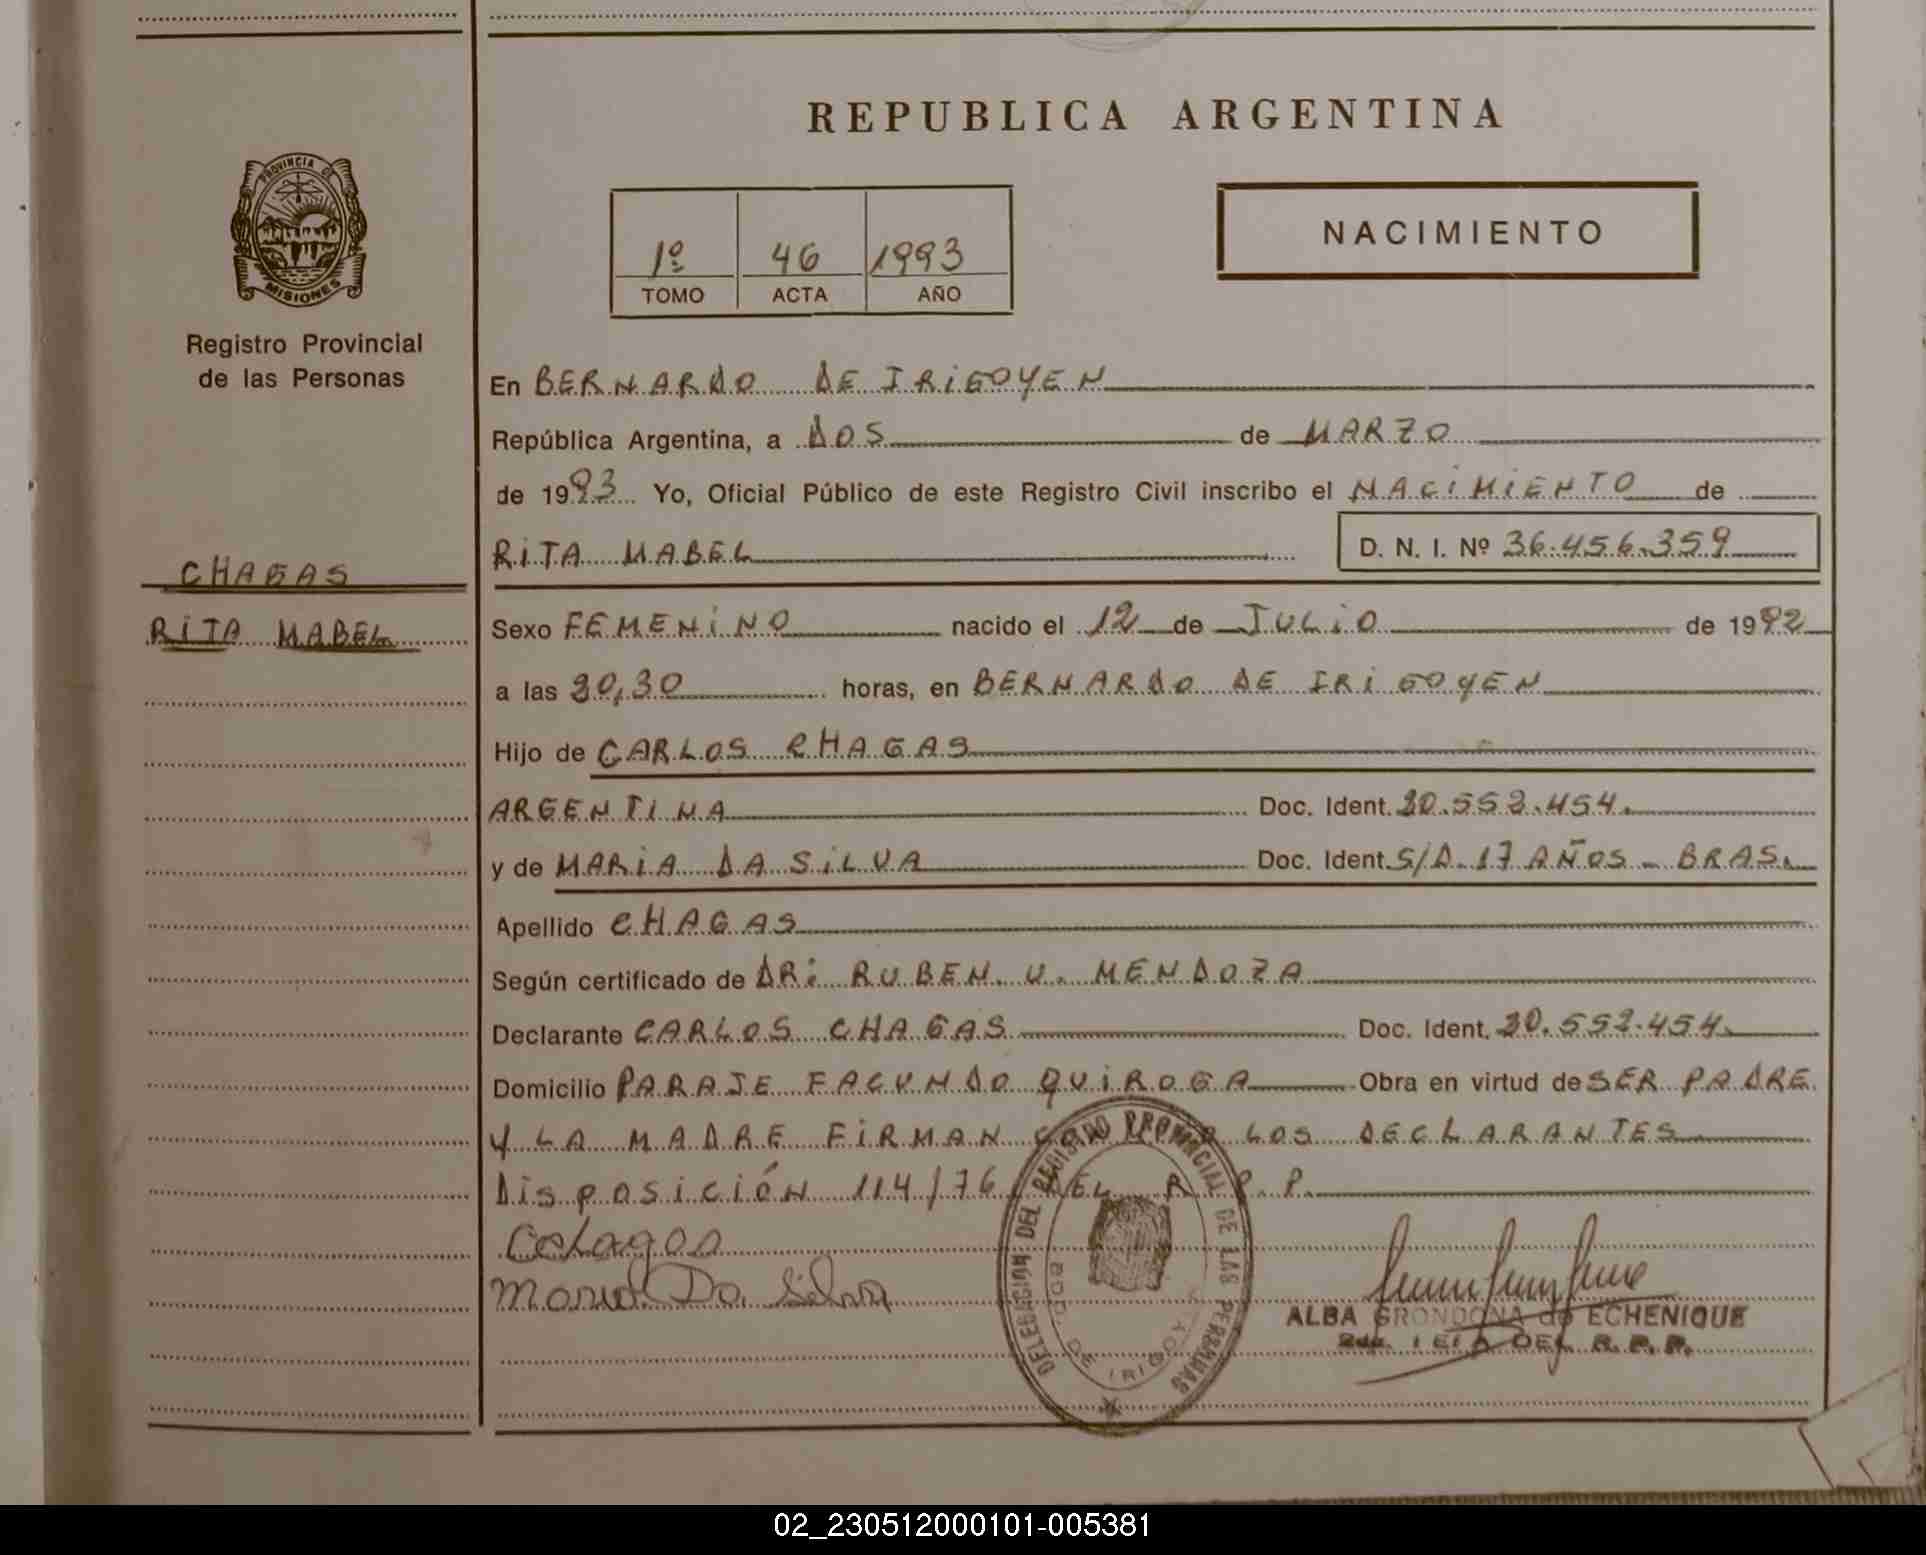 REPUBLICA ARGENTINA
PROVINCIA DE
MISIONES
Registro Provincial
de las Personas
1º 46 1993
TOMO ACTA AÑO
NACIMIENTO
CHAGAS
RITA MABEL
En BERNARDO DE IRIGOYEN
República Argentina, a DOS de MARZO
de 1993 Yo, Oficial Público de este Registro Civil inscribo el NACIMIENTO de
RITA MABEL D. N. I. Nº 36.456.359
Sexo FEMENINO nacido el 12 de JULIO de 1992
a las 20,30 horas, en BERNARDO DE IRIGOYEN
Hijo de CARLOS CHAGAS
ARGENTINA Doc. Ident. 20.552.454.
y de MARIA DA SILVA Doc. Ident. S/D. 17 AÑOS - BRAS.
Apellido CHAGAS
Según certificado de DR: RUBEN. U. MENDOZA
Declarante CARLOS CHAGAS Doc. Ident. 20.552.454.
Domicilio PARAJE FACUNDO QUIROGA Obra en virtud de SER PADRE
Y LA MADRE FIRMAN COMO LOS DECLARANTES
Disposición 114/76 DEL R.P.P.
Maria Da Silva
DELEGACION DEL REGISTRO PROVINCIAL DE LAS PERSONAS
BDO. DE IRIGOYEN
ALBA GRONDONA de ECHENIQUE
DEL R.P.P.
02_230512000101-005381